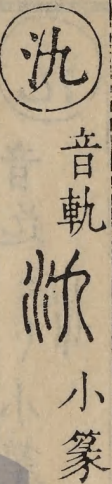 氿音軌氿小篆